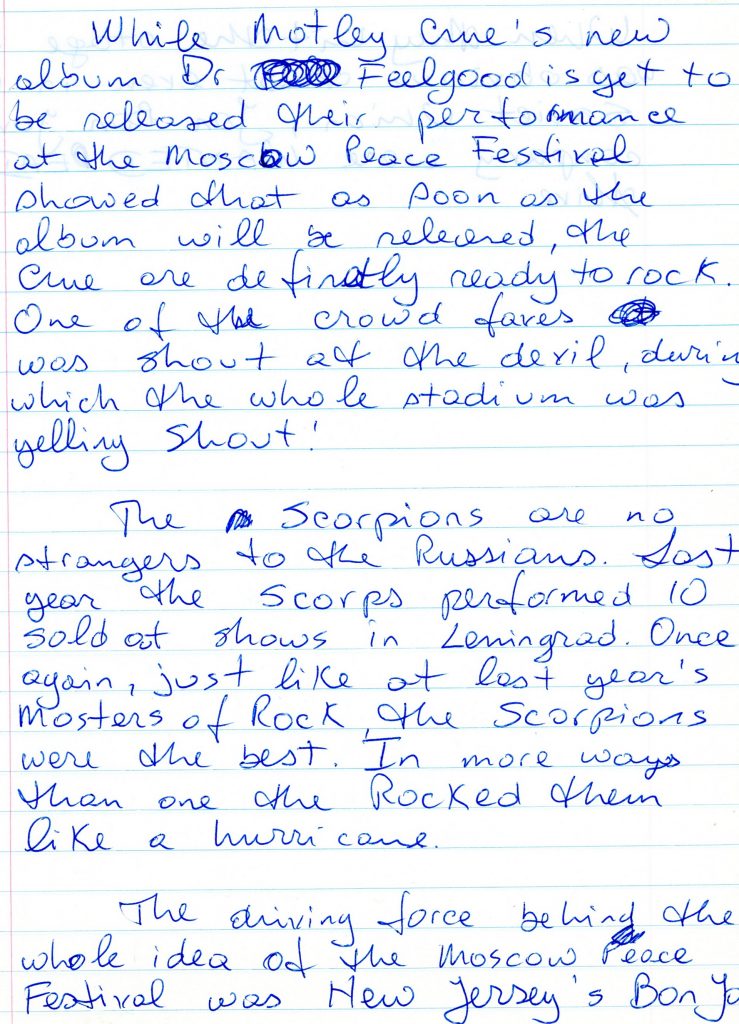 While Motley Crue's new
album Dr Feelgood is yet to
be released their performance
at the Moscow Peace Festival
showed that as soon as the
album will be released, the
Crue are definatly ready to rock.
One of the crowd faves
was shout at the devil, durin
which the whole stadium was
yelling Shout!
The Scorpions are no
strangers to the Russians. Last
year the Scorps performed 10
sold out shows in Leningrad. Once
again, just like at last year's
Mosters of Rock, the Scorpions
were the best. In more ways
than one the Rocked them
like a hurricane.
The driving force behind the
whole idea of the Moscow Peace
Festival was New Jersey's Bon Jo